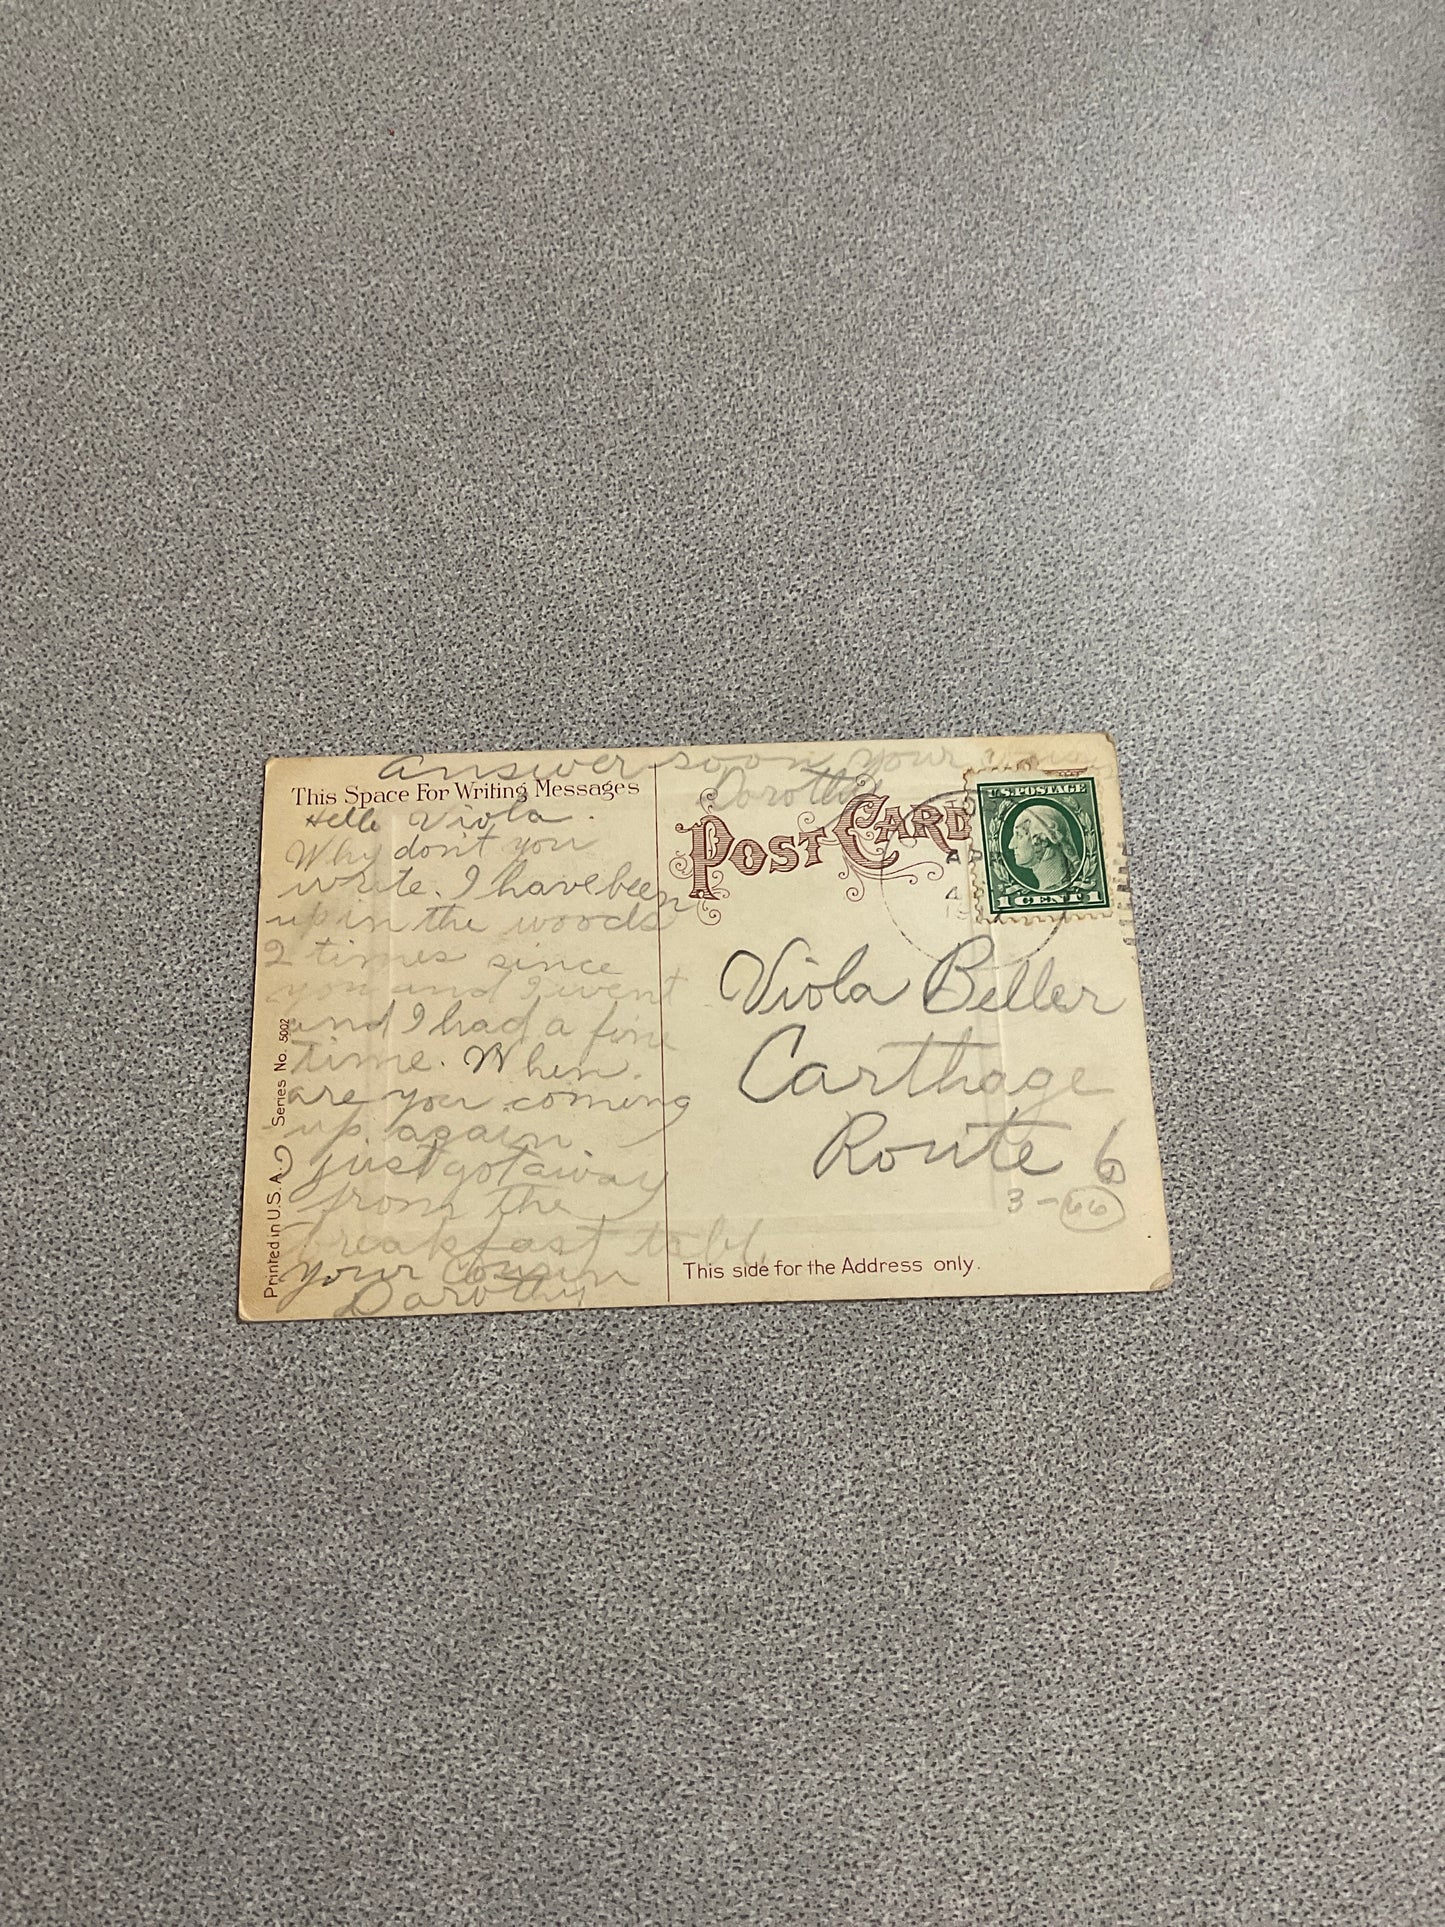 Answer soon your
Dorothy
This Space For Writing Messages
Hello Viola.
Why don't you
write. I have been
up in the woods
2 times since
you and I went
and I had a fine
time. When
are you coming
up again
just got away
from the
breakfast tabl
your Cousin
Dorothy
Printed in U.S.A. Series No. 5002
POST CARD
U.S. POSTAGE
1 CENT 1
AP
4
19
Viola Beller
Carthage
Route 6
3-66
This side for the Address only.